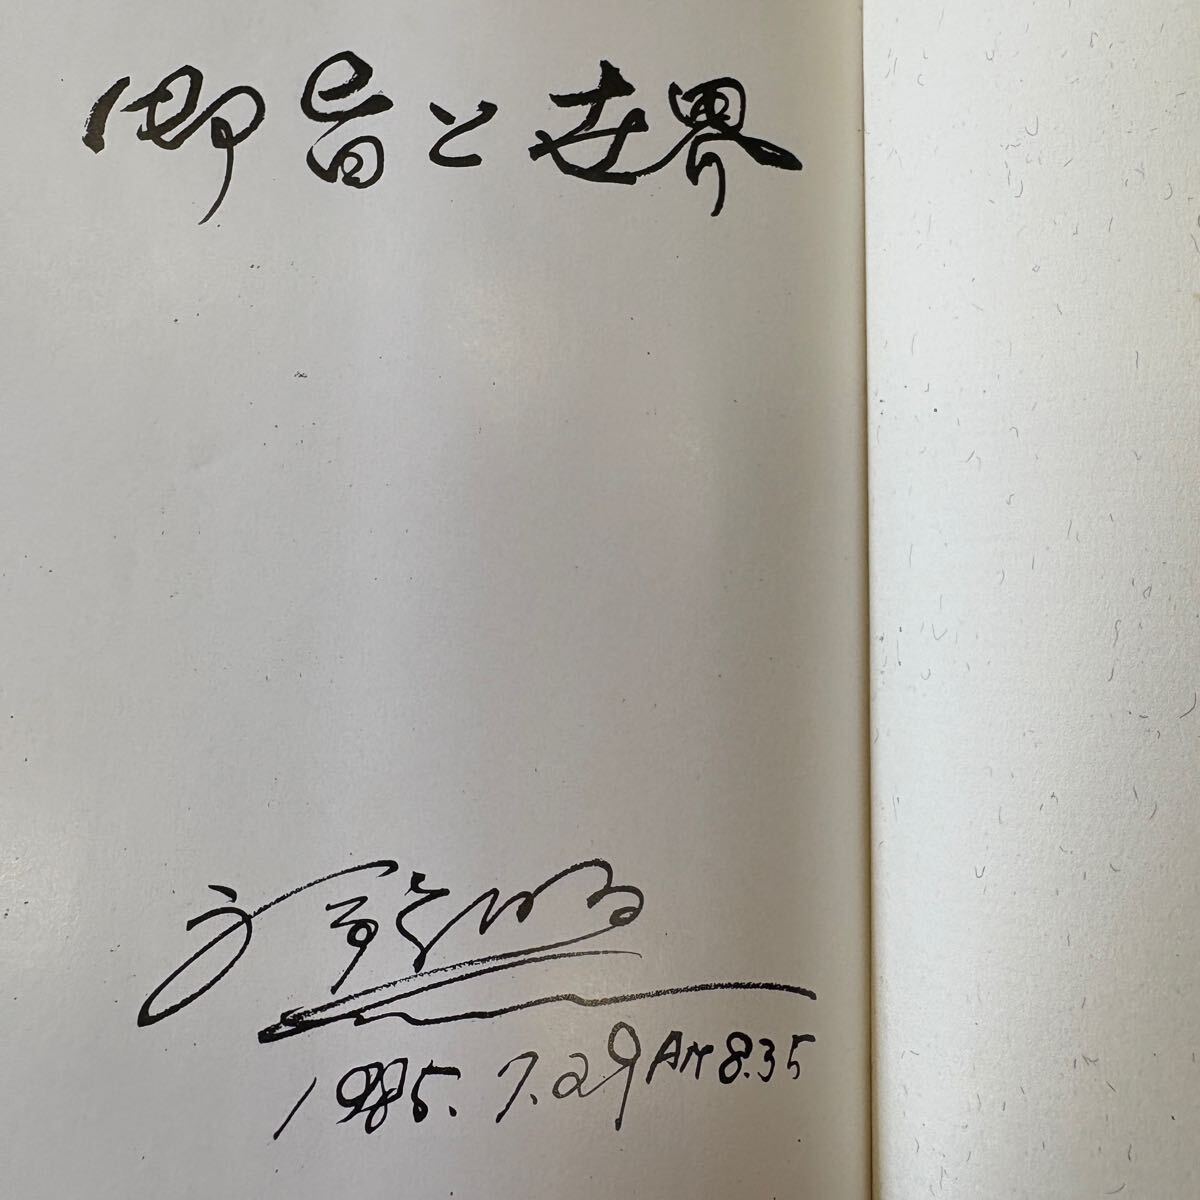 御旨と世界
文鮮明
1985.7.29 AM 8.35